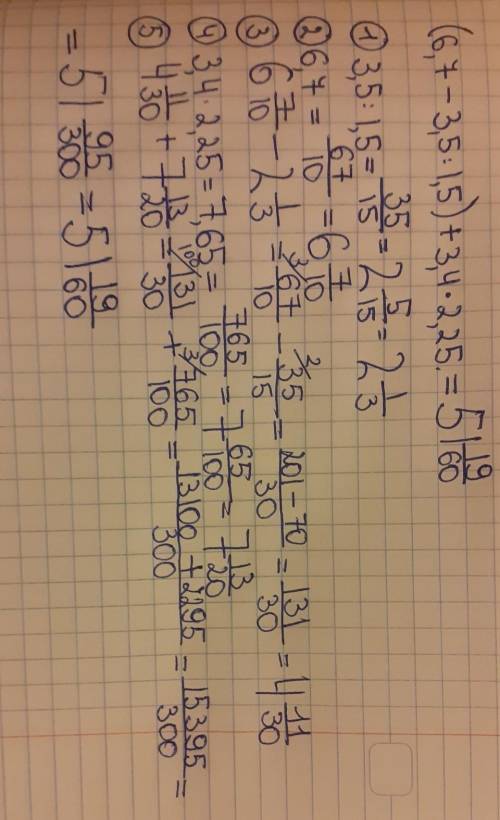 (6,7 - 3,5 : 1,5) + 3,4 · 2,25. = 51 19/60
① 3,5 : 1,5 = 35/15 = 2 5/15 = 2 1/3
② 6,7 = 67/10 = 6 7/10
③ 6 7/10 - 2 1/3 = 3/ 67/10 - 2/ 35/15 = 201-70/30 = 131/30 = 4 11/30
④ 3,4 · 2,25 = 7,65 = 765/100 = 7 65/100 = 7 13/20
⑤ 4 11/30 + 7 13/20 = 100/ 131/30 + 3/ 765/100 = 13100 + 2295/300 = 15395/300 =
= 51 95/300 = 51 19/60